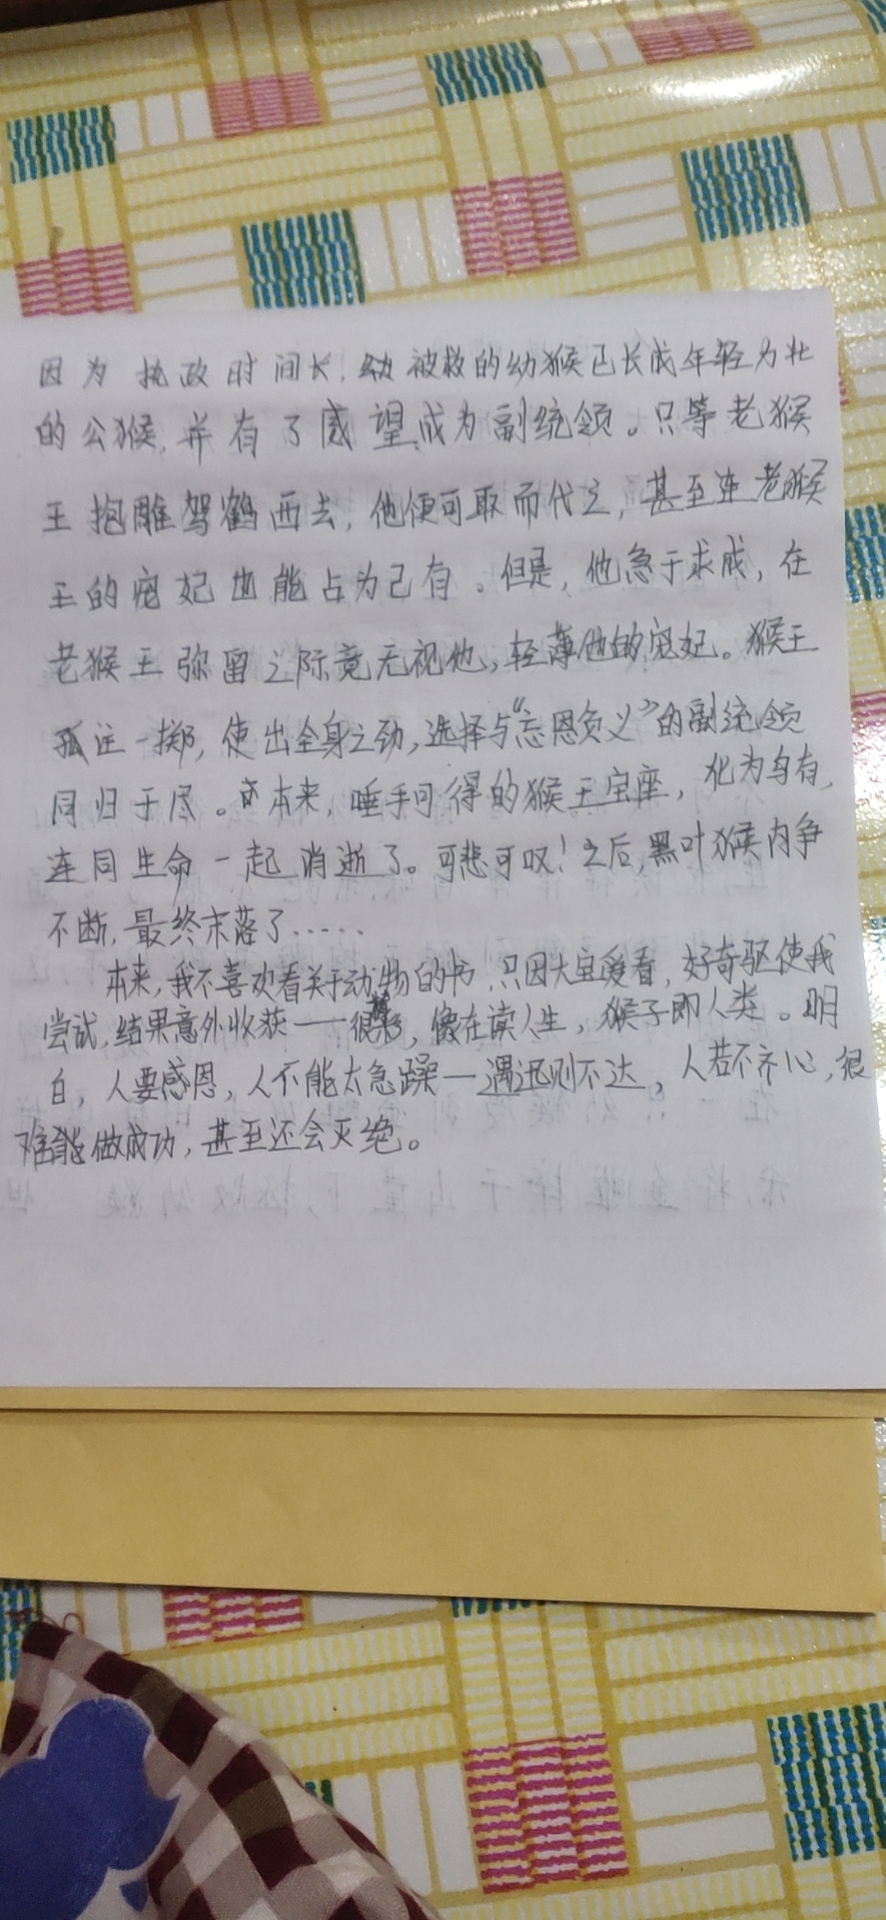 因为执政时间长,被救的幼猴已长成年轻力壮
的公猴,并有了威望成为副统领。只等老猴
王抱雕驾鹤西去,他便可取而代之,甚至连老猴
王的宠妃也能占为己有。但是,他急于求成,在
老猴王弥留之际竟无视他,轻薄他的宠妃。猴王
孤注一掷,使出全身之劲,选择与“忘恩负义”的副统领
同归于尽。本来,唾手可得的猴王宝座,化为乌有,
连同生命一起消逝了。可悲可叹!之后,黑叶猴内争
不断,最终末落了……
本来,我不喜欢看关于动物的书,只因大宝爱看,好奇驱使我
尝试,结果意外收获——很精彩,像在读人生,猴子即人类。明
白,人要感恩,人不能太急躁—遇迅则不达,人若不齐心,很
难能做成功,甚至还会灭绝。